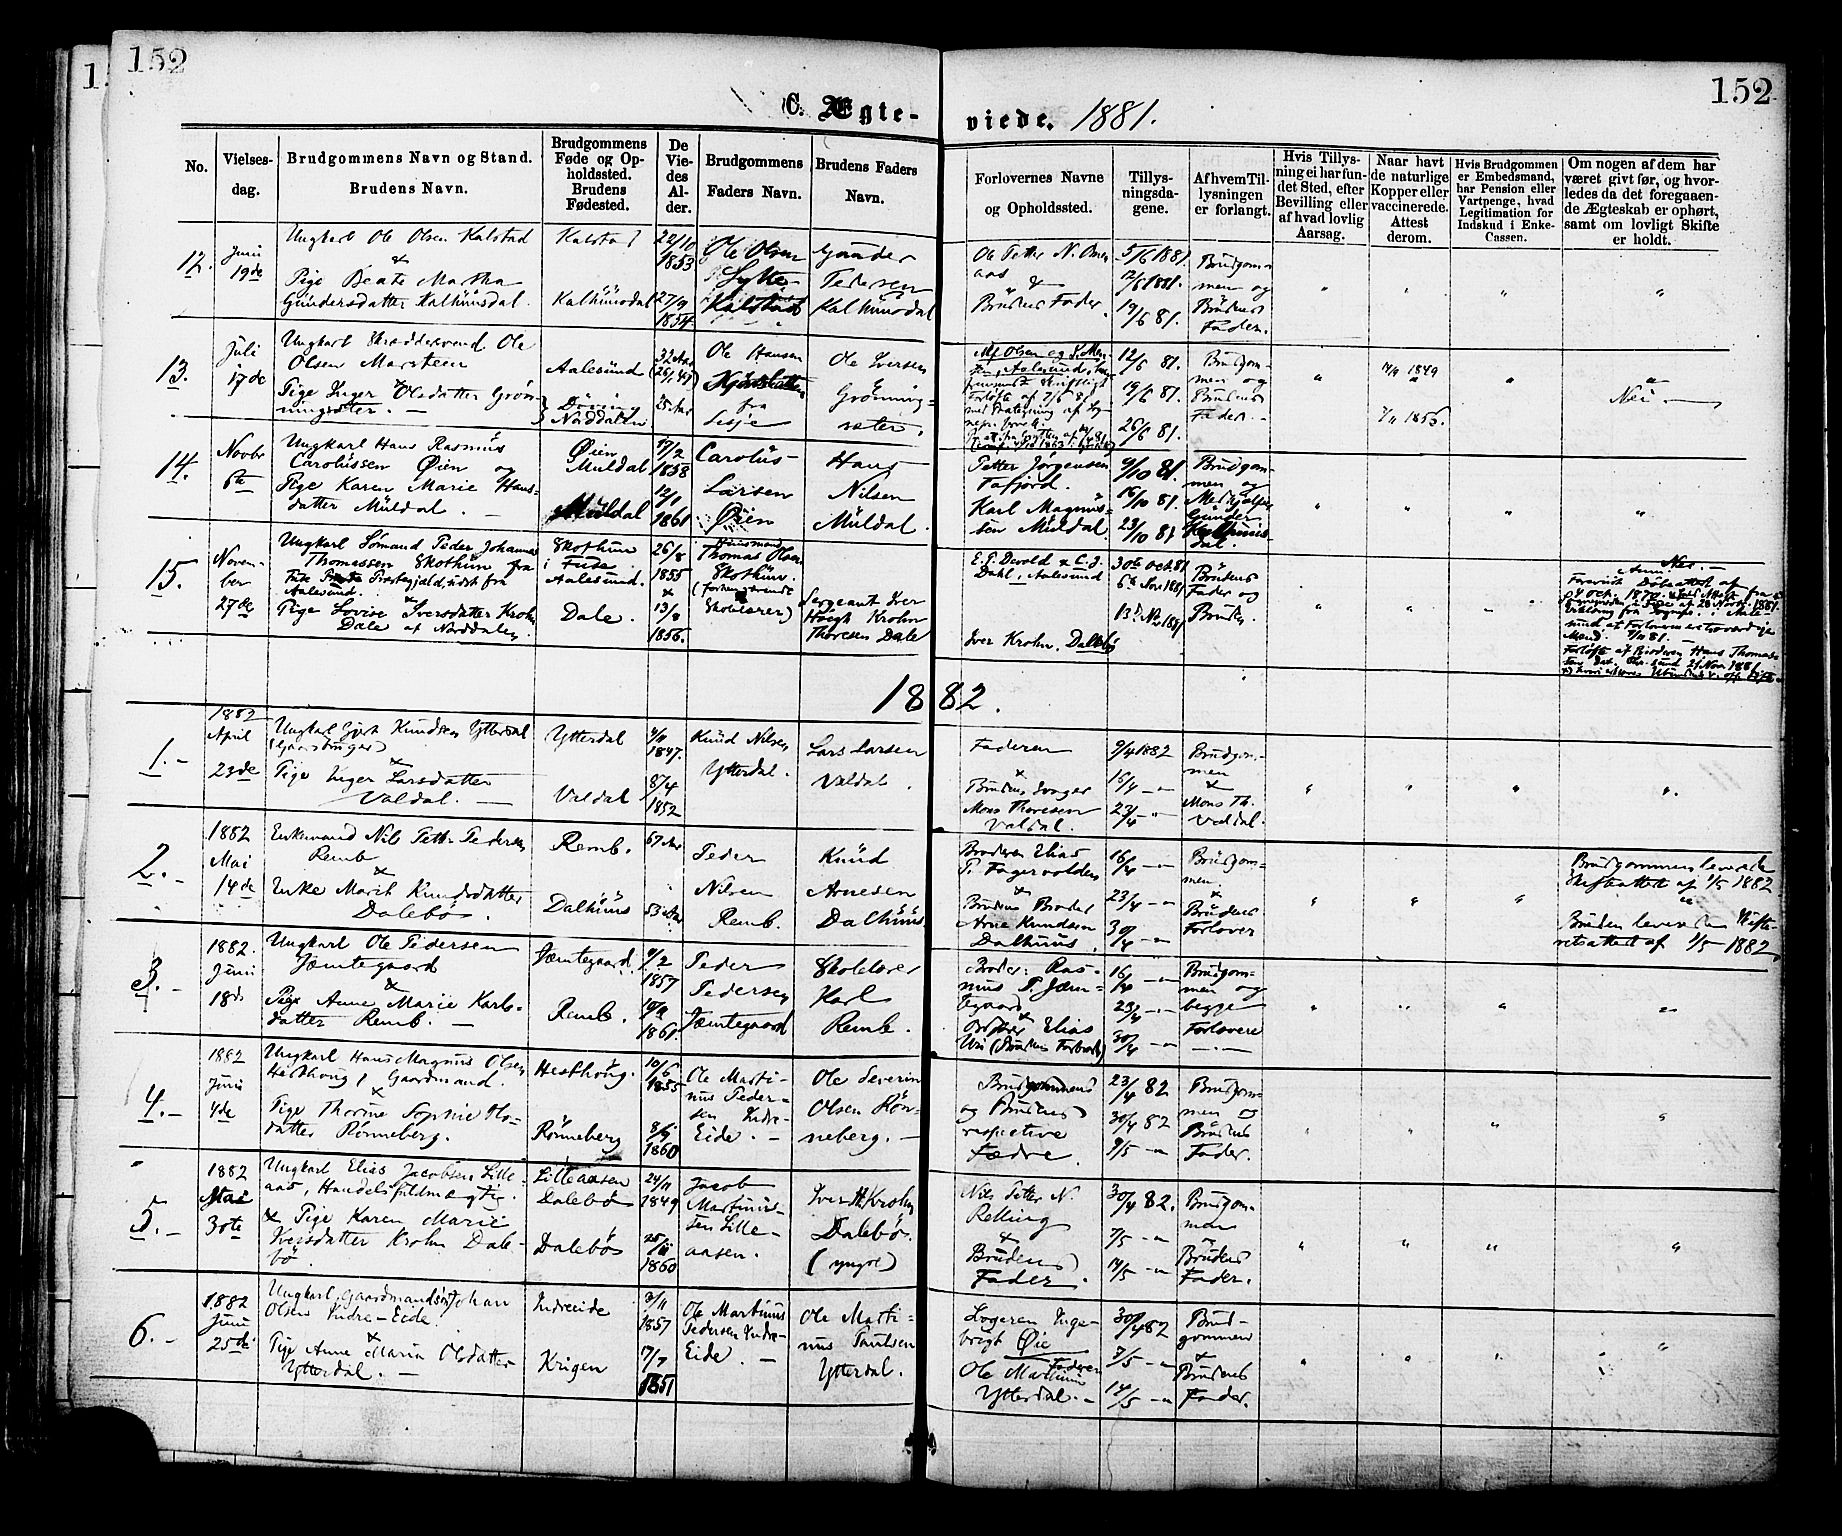 152
152
C. Ægte-
viede. 1881.
No.
Vielses-
dag.
Brudgommens Navn og Stand.
Brudens Navn.
Brudgommens
Føde og Op-
holdssted.
Brudens
Fødested.
De
Vie-
des
Al-
der.
Brudgommens
Faders Navn.
Brudens Faders
Navn.
Forlovernes Navne
og Opholdssted.
Tillys-
ningsda-
gene.
Af hvem Til-
lysningen
er forlangt.
Hvis Tillys-
ning ei har fun-
det Sted, efter
Bevilling eller
af hvad lovlig
Aarsag.
Naar havt
de naturlige
Kopper eller
vaccinerede.
Attest
derom.
Hvis Brudgommen
er Embedsmand,
har Pension eller
Vartpenge, hvad
Legitimation for
Indskud i Enke-
Cassen.
Om nogen af dem har
været givt før, og hvor-
ledes da det foregaaen-
de Ægteskab er ophørt,
samt om lovligt Skifte
er holdt.
12.
Juni
19de
Ungkarl Ole Olsen Kalstad
&
Pige Beate Martha
Gundersdatter Kalhuusdal.
Kalstad
Kalhuusdal
22/10
1853
27/9
1854
Ole Olsen
Kalstad
Gunder
Pedersen
Kalhuusdal
Ole Petter N.
aas
&
Brudens Fader.
5/6 1881.
12/6 1881.
19/6 81.
Brudgom-
men og
Brudens
Fader.
13.
Juli
17de
Ungkarl Skræddersvend Ole
Olsen Marsteen
&
Pige Inger Olsdatter Grøn-
ningsæter. —
Aalesund
Norddalen
32 Aar
(26/1 49)
25 Aar
Ole Hansen
fra
Lesje
Ole Iversen
Grønning-
sæter.
12/6 81.
19/6 81.
26/6 81.
Brudgom-
men og
Brudens
Fader. —
1849
1856.
Nei —
14.
Novbr
6te
Ungkarl Hans Rasmus
Carolussen Øien og
Pige Karen Marie Hans-
datter Muldal. —
Øien
Muldal
Muldal
7/2
1858
12/1
1861
Carolus
Larsen
Øien
Hans
Nilsen
Muldal.
Petter Jørgensen
Tafjord.
Karl Magnus-
sen Muldal
9/10 81.
16/10 81.
23/10 81
Brudgom-
men og
Medhjælper
Gunder
Kalhuus-
dal.
15.
Novem-
ber
27de
Ungkarl Sømand Peder Johannes
Thomassen Skothun fra
Aalesund. &
Pige Lovise Iversdatter Krohn
Dale af Norddalen
Skothun
i
Aalesund.
Dale.
26/8
1855
&
13/8
1856.
Huusmand
Thomas Olsen
Skothun.
(forhenværende
Skolelærer)
Sergeant Iver
Høegh Krohn
Thoresen Dale
E. F. Devold & C. J.
Dahl, Aalesund
Iver Krohn, Dalebø
30te oct. 81
6te Nov. 1881
13de Nov 1881
Brudens
Fader og
Bruden.
Nei. —
1882.
1. -
1882
April
23de
Ungkarl Gjert Knudsen Ytterdal
(gaardbruger)
&
Pige Inger Larsdatter
Valdal. —
Ytterdal
Valdal
1847.
8/4
1852
Knud Nilsen
Ytterdal.
Lars Larsen
Valdal.
Faderen
&
Brudens Svoger
Mons Thoresen
Valdal.
9/4 1882
16/4 — "
23/4 "
Brudgom-
men
&
Mons Th.
Valdal.
2. -
1882
Mai
14de
Enkemand Nils Petter Pedersen
Remb
&
Enke Marit Knudsdatter
Dalebøs.
Remb.
Dalhuus
67 Aar
53 Aar
Peder
Nilsen
Remb.
Knud
Arnesen
Dalhuus
Broderen Elias
P. Fagervolden
&
Brudens Broder
Arne Knudsen
Dalhuus.
16/4 — "
23/4 — "
30/4 — "
Brudgom-
men
&
Brudens
Forlover
Brudgommen leverede
Skifteattest af 1/5 1882
"
Bruden leverede Skifte-
retsattest af 1/5 1882.
3. -
1882.
Juni
18de
Ungkarl Ole Pedersen
Jæmtegaard
&
Pige Anne Marie Karls-
datter Remb. —
Jæmtegaard.
Remb.
9/2
1857
1861.
Peder
Pedersen
Jæmtegaard
Skolelærer
Karl
Remb.
Broder: Ras-
mus P. Jæm-
tegaard
&
Elias
Uri
16/4 — "
23/4 — "
30/4 — "
Brudgom-
men og
begge
Forlovere
4. -
1882
Juni
4de
Ungkarl Hans Magnus Olsen
Hesthoug, Gaardmand.
&
Pige Thorine Sophie Ols-
datter Rønneberg.
Hesthoug.
Rønneberg
10/6
1855
8/9
1860
Ole Marti-
nus Peder-
sen Indre-
Eide. —
Ole Severin
Olsen Røn-
neberg. —
Brudgommens
og Brudens
respective
Fædre.
23/4 82
30/4 82
7/5 — "
Brudgom-
men og
Brudens
Fader.
5. -
1882
Mai
30te
Ungkarl Elias Jacobsen Lille-
aas, Handelsfuldmægtig.
& Pige Karen Marie
Iversdatter Krohn Dale-
bø.
Lilleaasen
Dalebø
Dalebøs
24/11
1849
25/11
1860
Jacob
Martinus-
sen Lille-
aasen.
Iver Th. Krohn
Dalebø.
(yngre)
Nils Petter N.
Relling
&
Brudens
Fader.
30/4 82.
7/5 — "
14/5 — "
Brudgom-
men
og
Brudens
Fader.
6. -
1882
Juni
25de
Ungkarl, Gaardmandssøn Johan
Olsen Indre-Eide.
&
Pige Anne Maria Olsdatter
Ytterdal. —
Indreeide
Krigen
3/11
1857
7/7
1851
Ole Martinus
Pedersen Indre-
Eide. —
Ole Marti-
nus Paulsen
Ytterdal.
Logeren Inge-
brigt Øie
Faderen
Ole Martinus
Ytterdal. —
30/4 82
7/5 — "
14/5 — "
Brud-
gommen
&
Brudens
Fader.